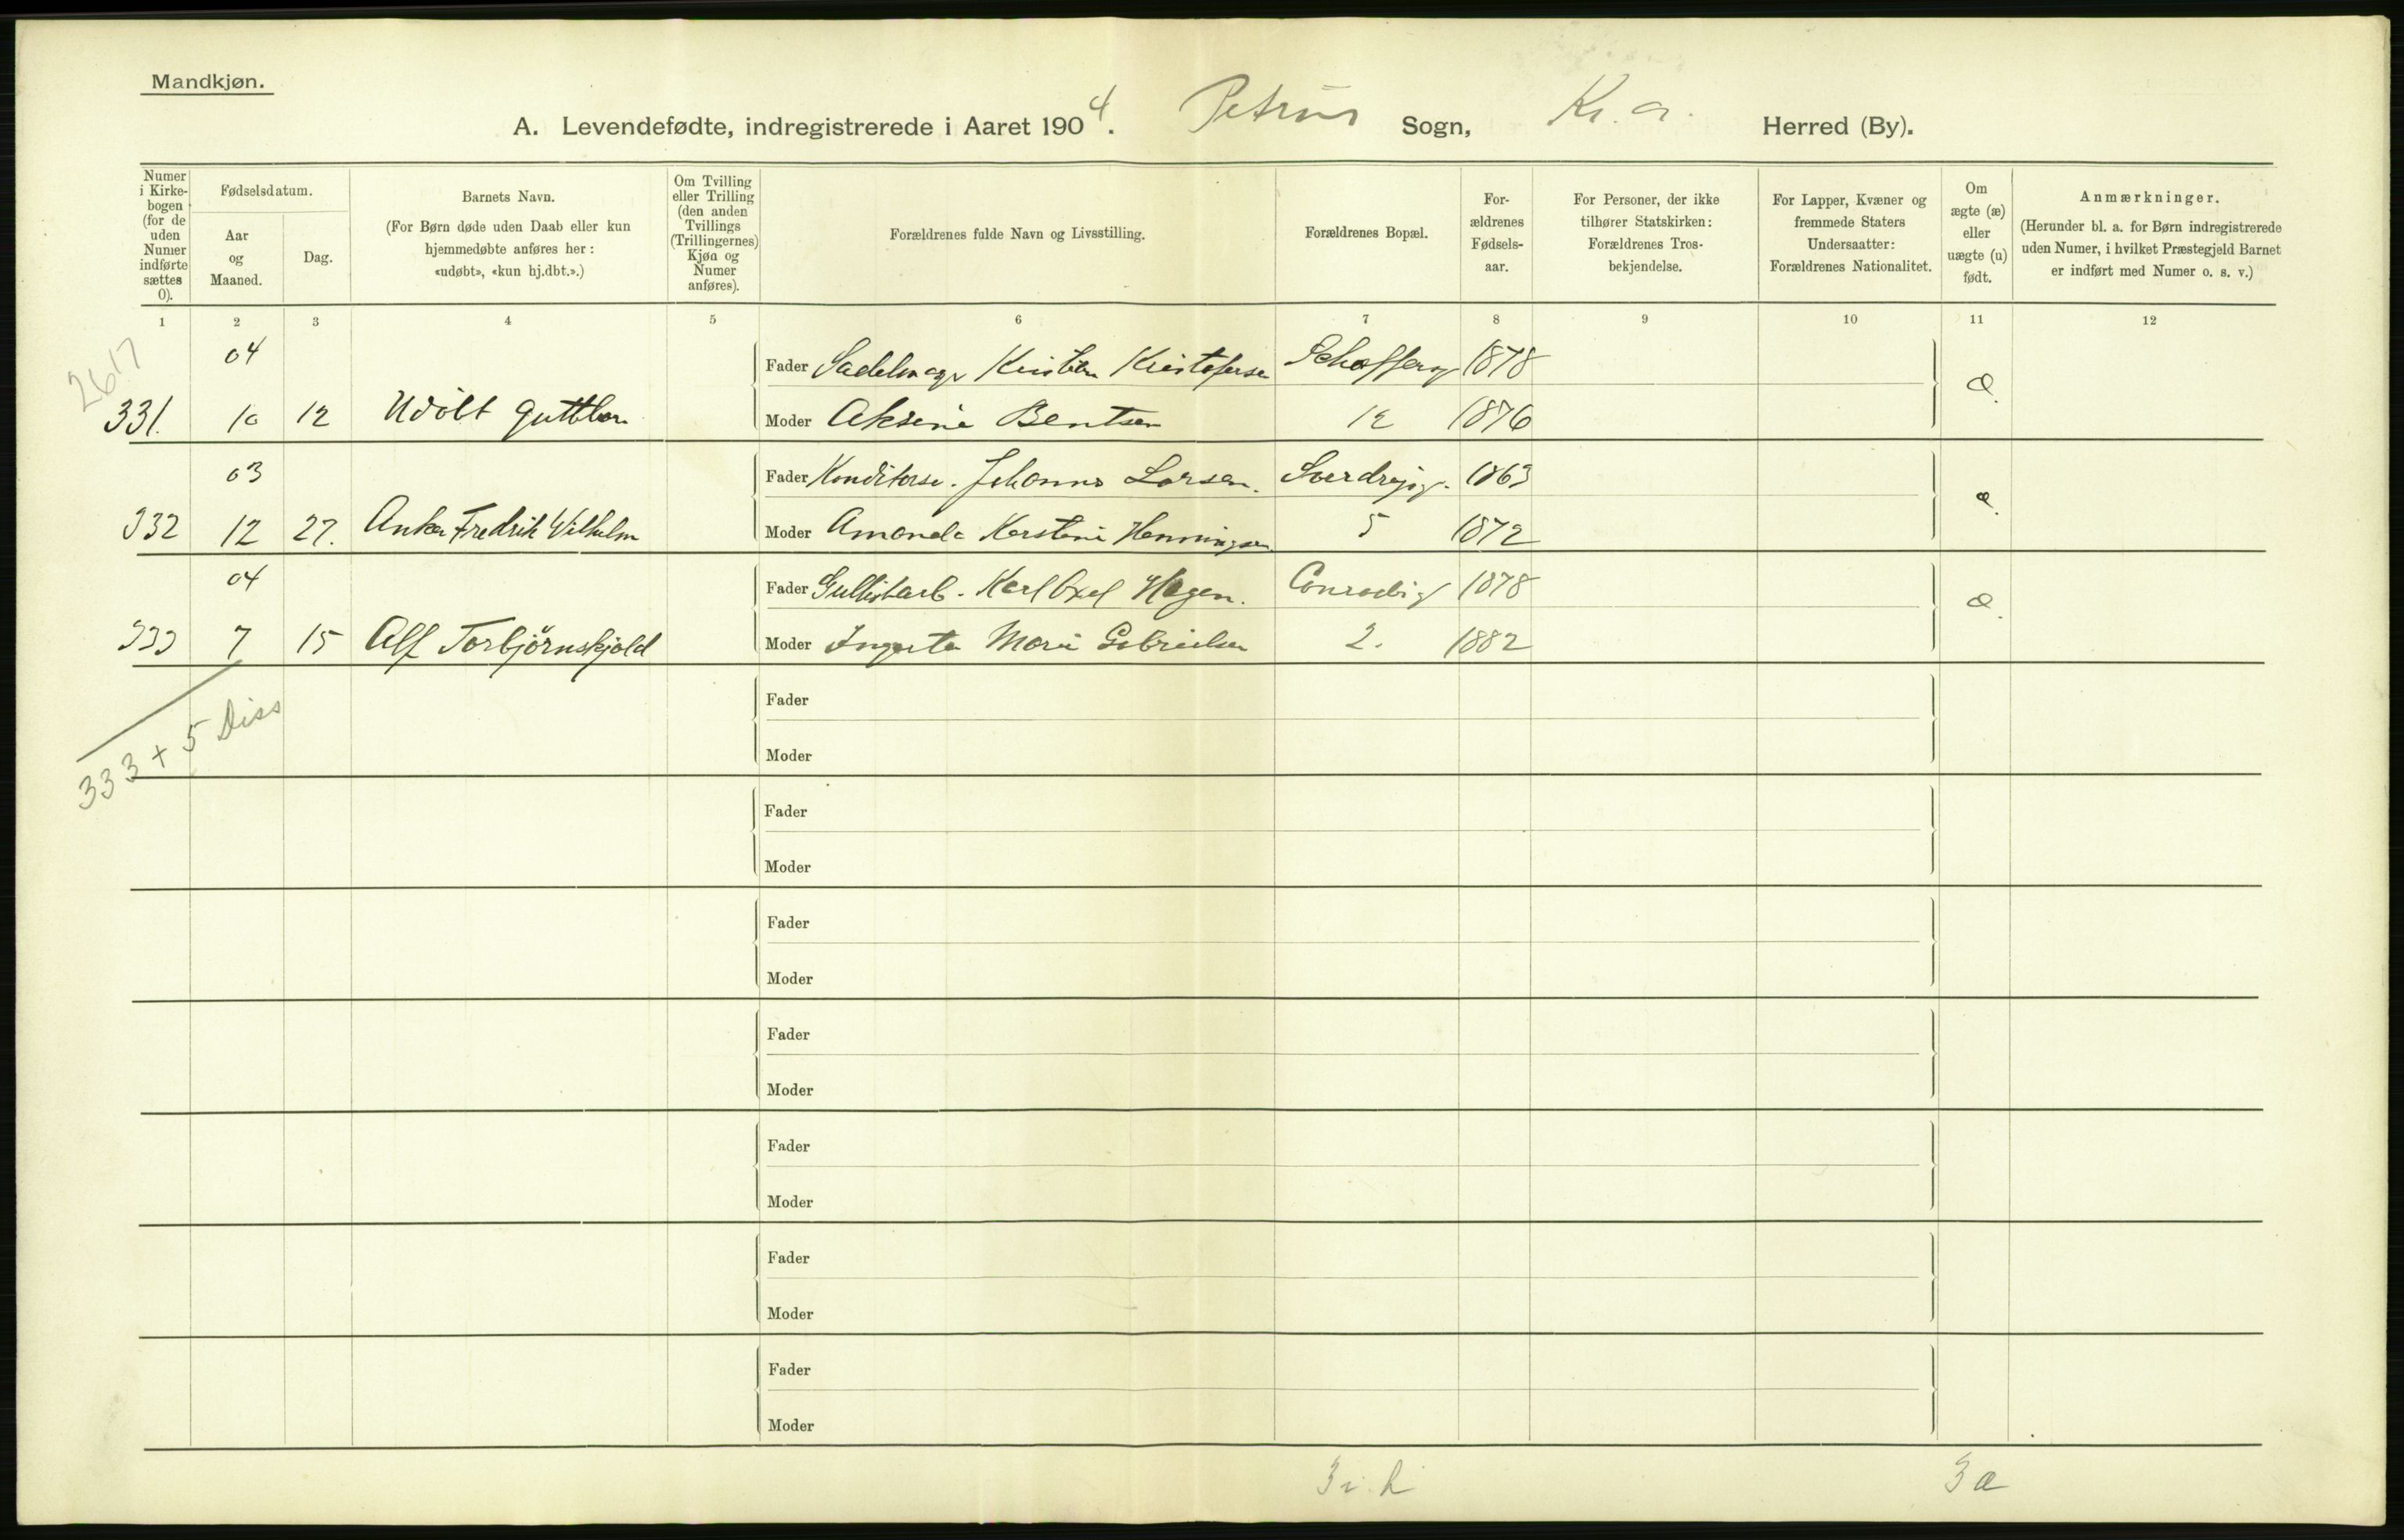 Mandkjøn.
A. Levendefødte, indregistrerede i Aaret 1904. Petrus Sogn, Kr.a. Herred (By).
Numer i Kirke-bogen (for de uden Numer indførte sættes 0).
Fødselsdatum.
Aar og Maaned.
Dag.
Barnets Navn.
(For Børn døde uden Daab eller kun
hjemmedøbte anføres her:
«udøbt», «kun hj.dbt.».)
Om Tvilling
eller Trilling
(den anden
Tvillings
(Trillingernes)
Kjøn og
Numer
anføres).
Forældrenes fulde Navn og Livsstilling.
Forældrenes Bopæl.
For-
ældrenes
Fødsels-
aar.
For Personer, der ikke
tilhører Statskirken:
Forældrenes Tros-
bekjendelse.
For Lapper, Kvæner og
fremmede Staters
Undersaatter:
Forældrenes Nationalitet.
Om
ægte (æ)
eller
uægte (u)
født.
Anmærkninger.
(Herunder bl. a. for Børn indregistrerede
uden Numer, i hvilket Præstegjeld Barnet
er indført med Numer o. s. v.)
1 2 3 4 5 6 7 8 9 10 11 12
2617
04 Fader Sadelmager Kristofersen 1878
331. 10 12 Udøbt Moder Aksine Bentsen 12 1876 æ.
03 Fader Johannes Larsen. 1863
332 12 27. Anker Fredrik Wilhelm Moder Amanda Henningsen 5 1872 æ.
04 Fader Karl Axel Hagen. 1878
333 7 15 Alf Torbjörnskjold Moder Marie Gabrielsen 2. 1882 æ.
333 + 5 Diss
Fader
Moder
Fader
Moder
Fader
Moder
Fader
Moder
Fader
Moder
Fader
Moder
Fader
Moder
3 i. h 3 æ